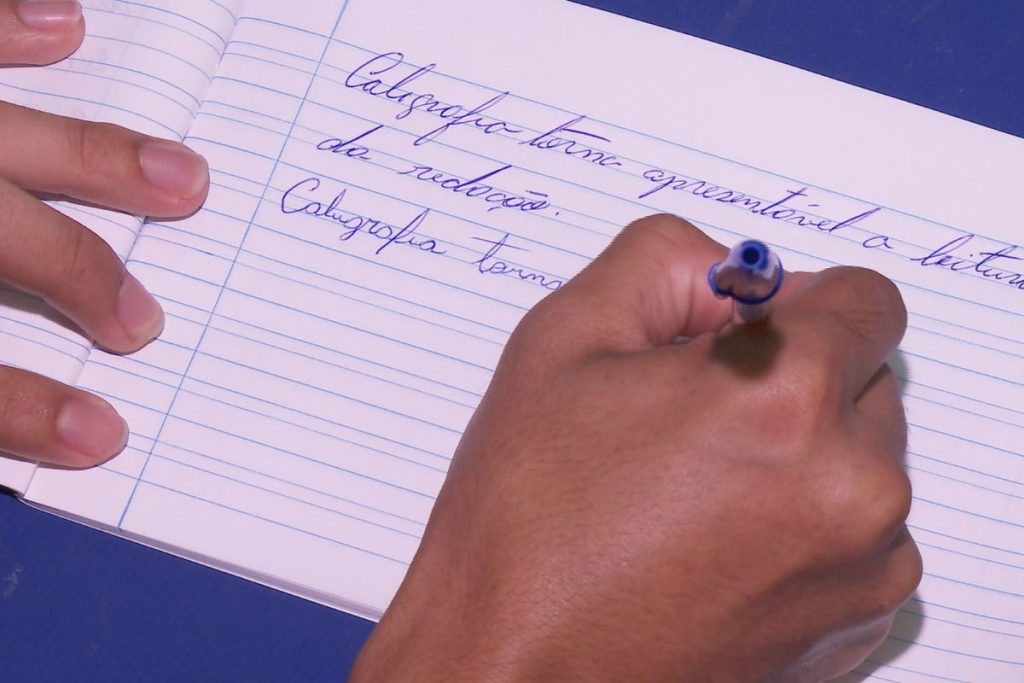 Caligrafia torna apresentável a leitura
da redação.
Caligrafia torna